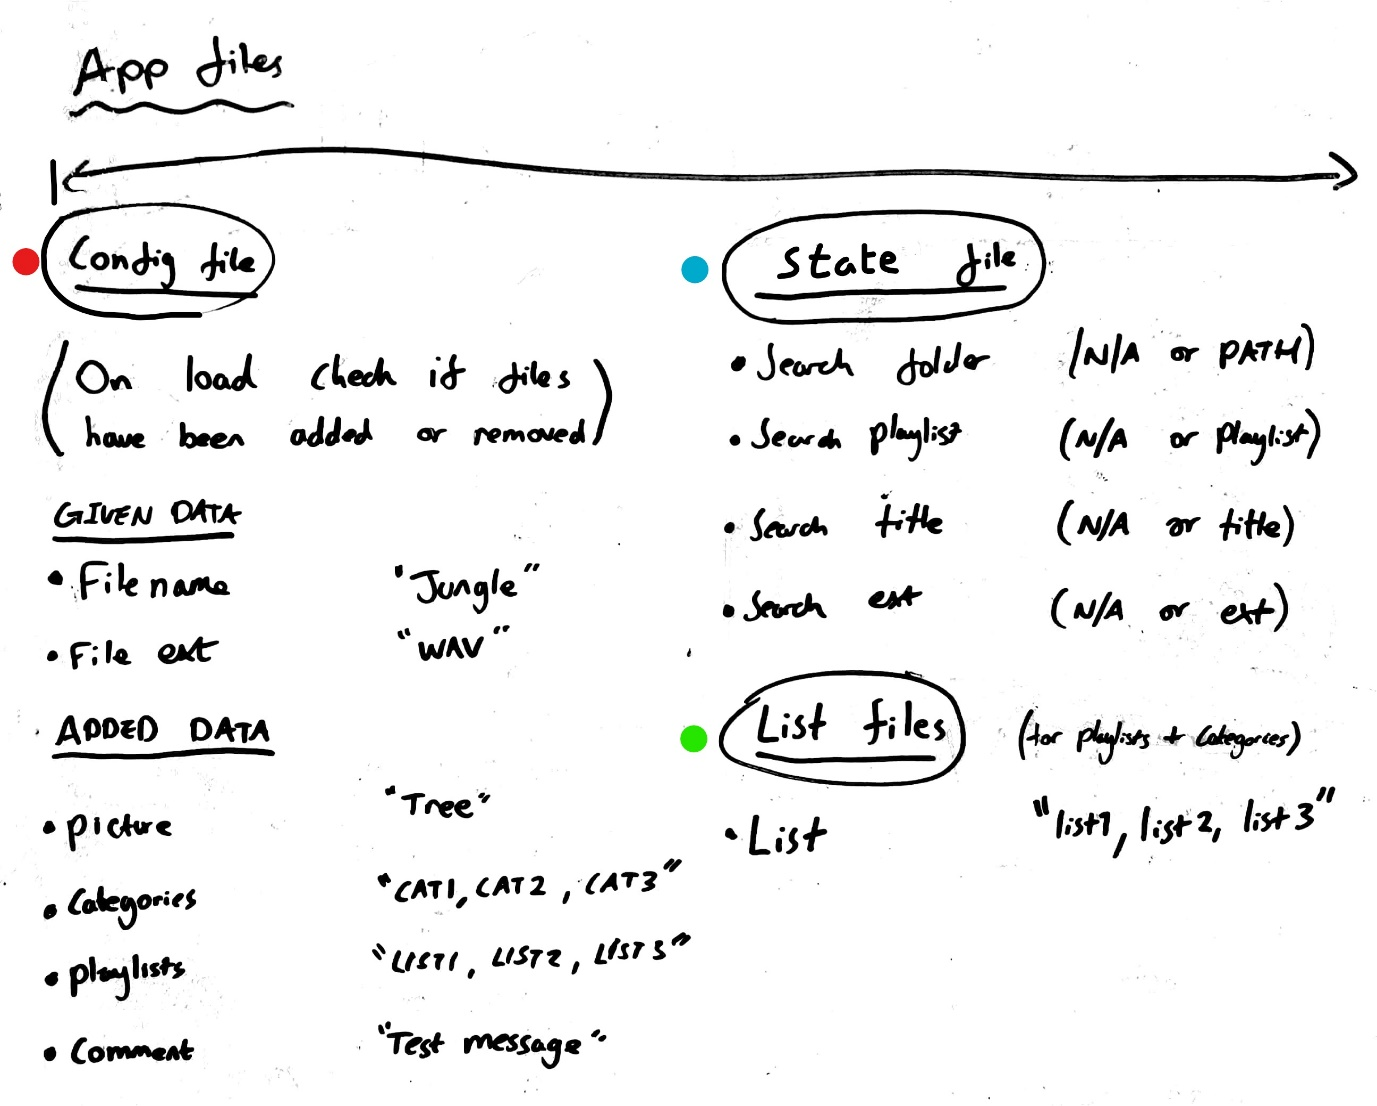 App files
Config file
(On load check if files
have been added or removed)
GIVEN DATA
• File name "Jungle"
• File ext "WAV"
ADDED DATA
• picture "Tree"
• Categories "CAT1, CAT2, CAT3"
• playlists "LIST1, LIST2, LIST3"
• Comment "Test message"
State file
• Search folder (N/A or PATH)
• Search playlist (N/A or playlist)
• Search title (N/A or title)
• Search ext (N/A or ext)
List files (for playlists + Categories)
• List "list1, list2, list3"